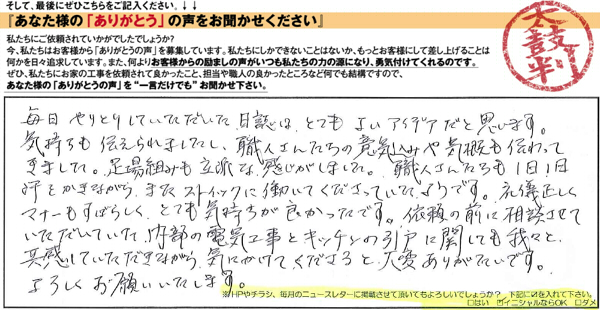 そして、最後にぜひこちらをご記入ください。↓↓↓
『あなた様の「ありがとう」の声をお聞かせください』
太鼓判
私たちにご依頼されていかがでしたでしょうか?
今、私たちはお客様から「ありがとうの声」を募集しています。私たちにしかできないことはないか、もっとお客様にして差し上げることは
何かを日々追求しています。また、何よりお客様からの励ましの声がいつも私たちの力の源になり、勇気付けてくれるのです。
ぜひ、私たちにお家の工事を依頼されて良かったこと、担当や職人の良かったところなど何でも結構ですので、
あなた様の「ありがとうの声」を“一言だけでも”お聞かせ下さい。
毎日やりとりしていただいた日誌は、とてもよいアイデアだと思います。
気持ちも伝えられましたし、職人さんたちの意気込みや気概も伝わって
きました。足場組みも立派な感じがしました。職人さんたちも1日1日
汗をかきながら、またストイックに働いてくださっていたようです。礼儀正しく
マナーもすばらしく、とても気持ちが良かったです。依頼の前に相談させて
いただいていた、内部の電気工事とキッチンの引戸に関しても我々と
共感していただきながら、気にかけてくださると大変ありがたいです。
よろしくお願いいたします。
※HPやチラシ、毎月のニュースレターに掲載させて頂いてもよろしいでしょうか? 下記に☑を入れて下さい。
□はい ☑イニシャルならOK □ダメ